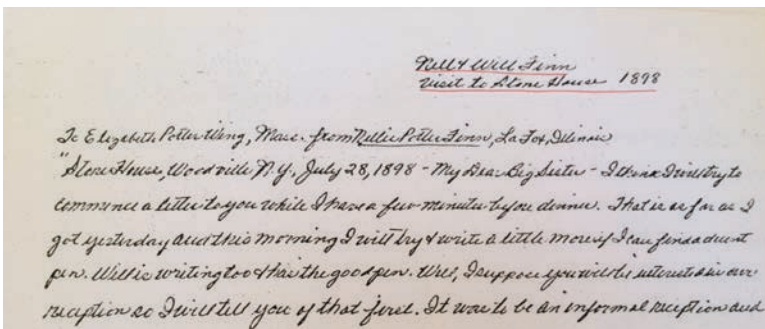 Nell & Will Finn
Visit to Stone House 1898
To Elizabeth Potter Wing, Mass. from Nellie Potter Finn, La Fox, Illinois
"Stone House, Woodville N.Y., July 28, 1898 - My Dear Big Sister - I think I will try to
commence a letter to you while I have a few minutes before dinner. That is as far as I
got yesterday and this morning I will try & write a little more if I can find a decent
pen. Will is writing too & has the good pen. Well, I suppose you will be interested in our
reception so I will tell you of that first. It was to be an informal reception and